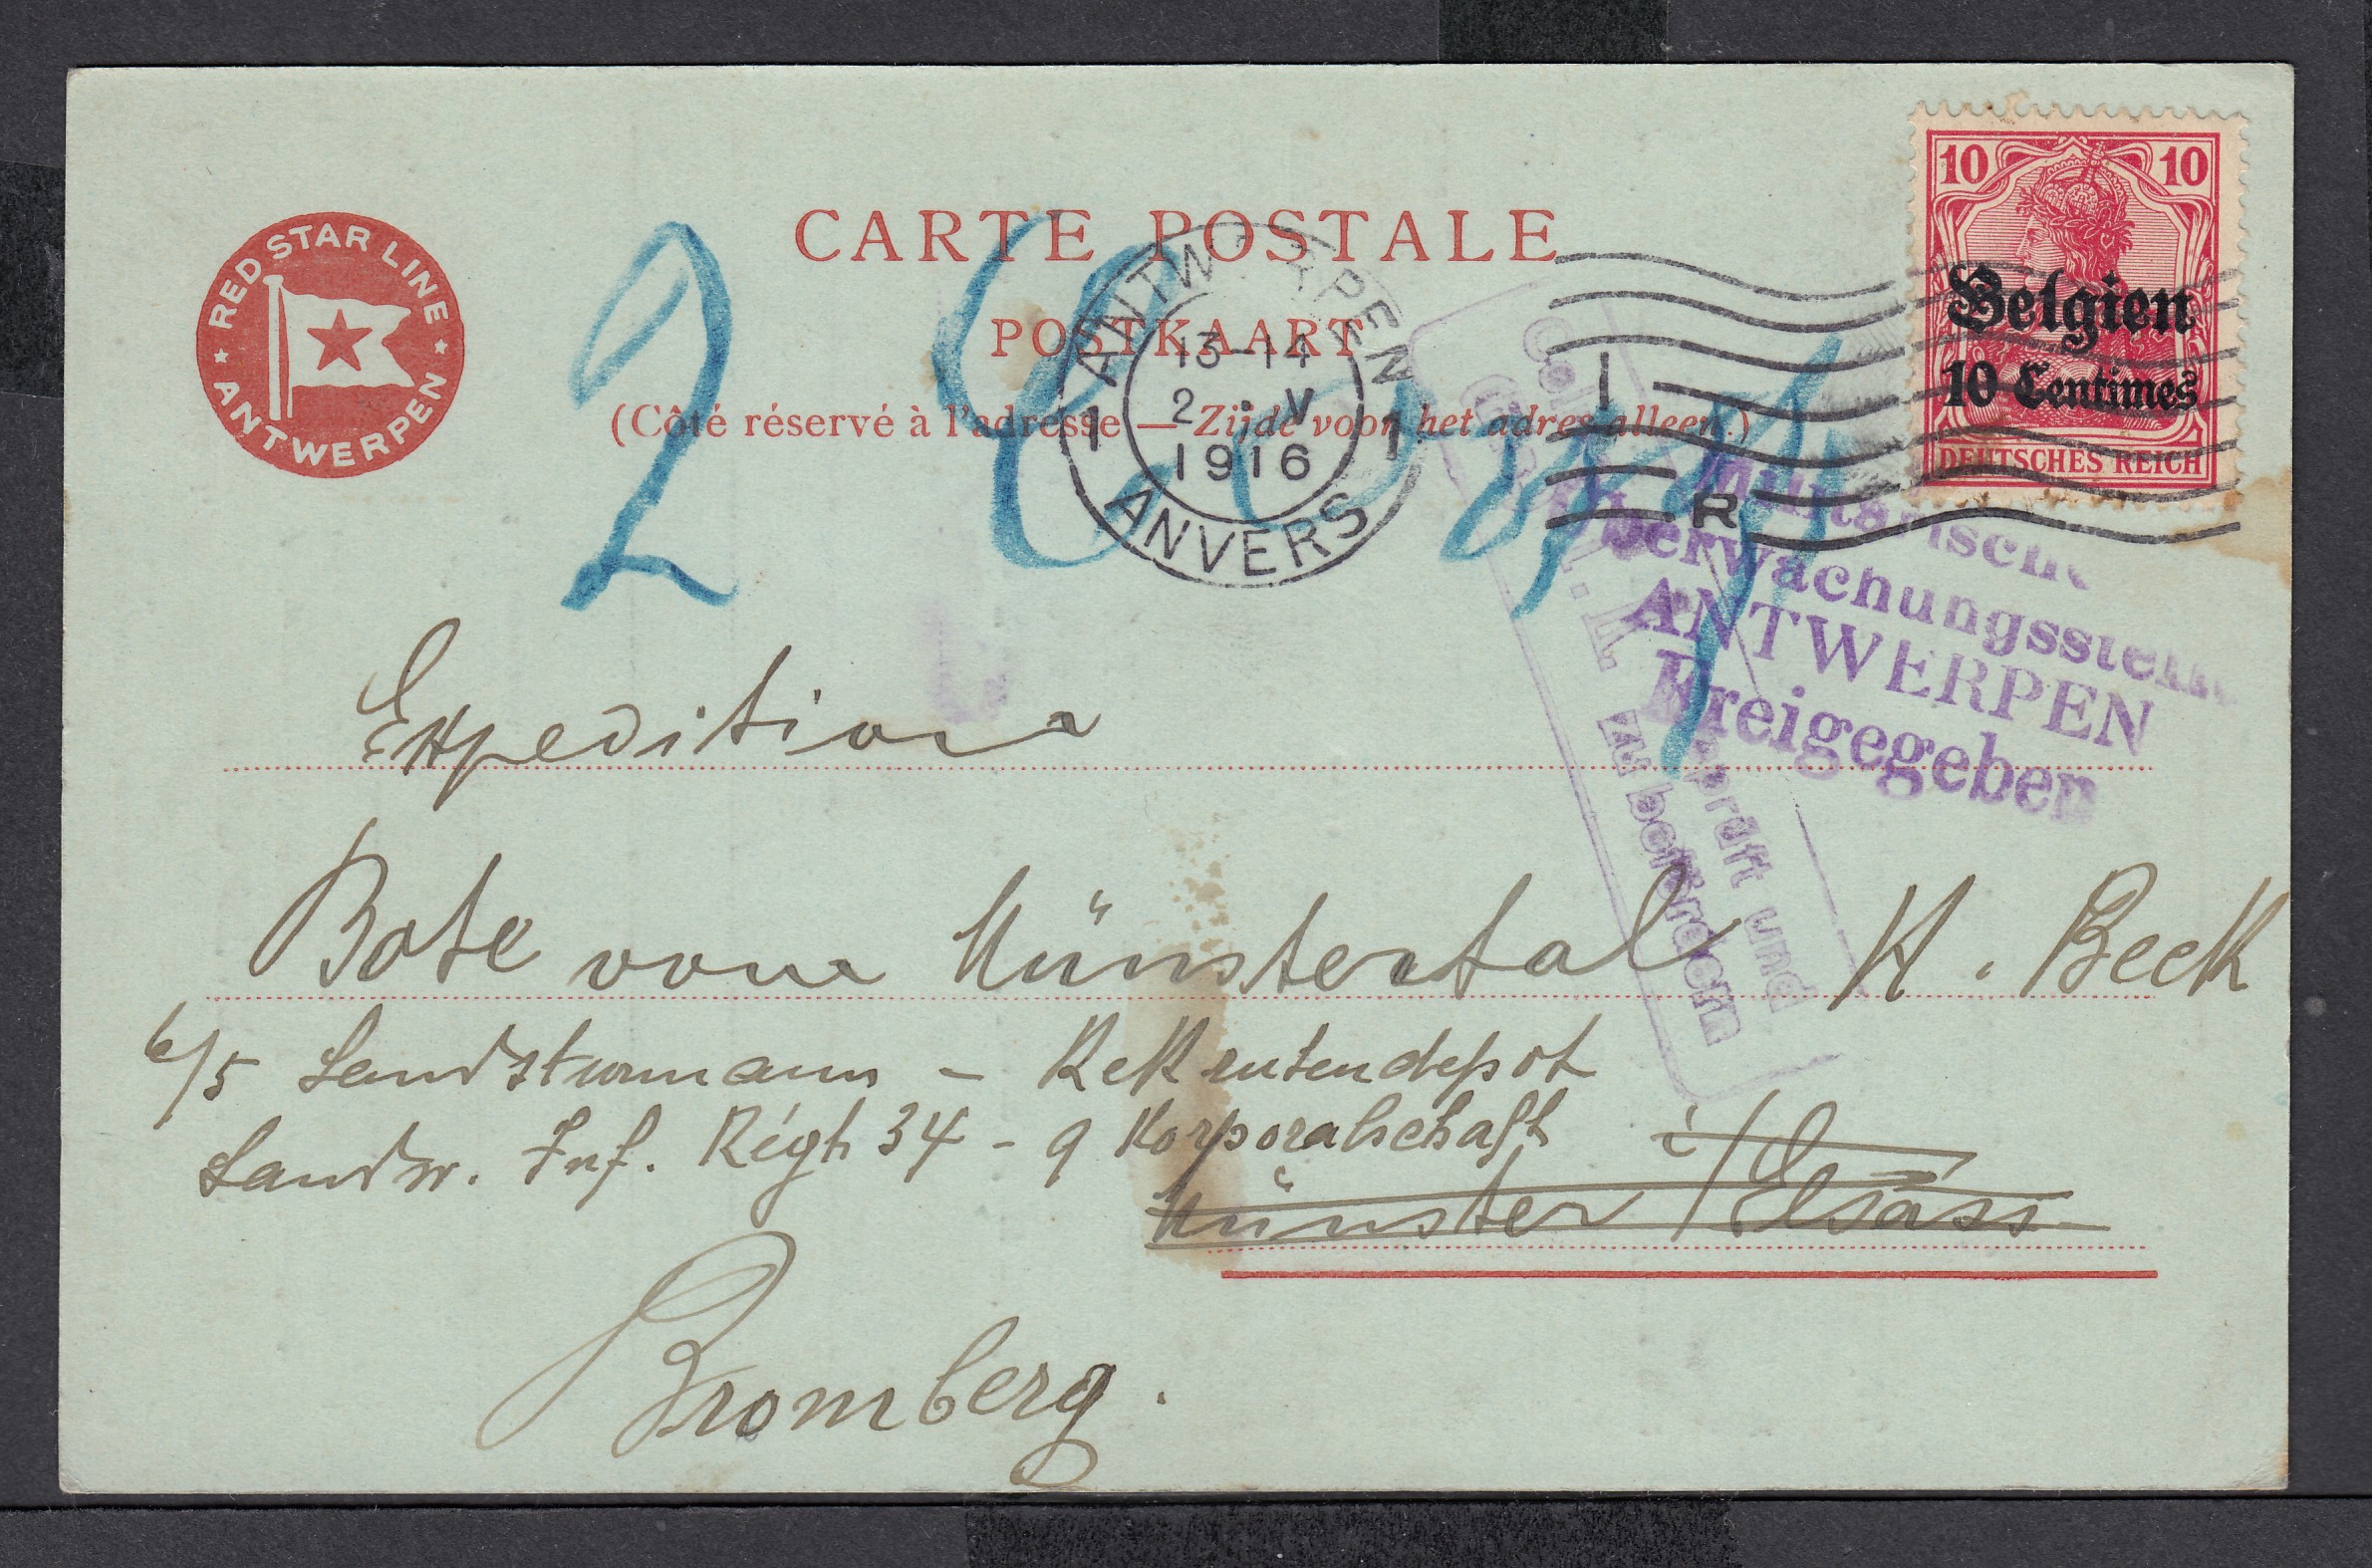 RED STAR LINE
ANTWERPEN
CARTE POSTALE
POSTKAART
(Côté réservé à l'adresse — Zijde voor het adres alleen.)
10 10
Belgien
10 Centimes
DEUTSCHES REICH
ANTWERPEN
1 1
13-14
2 · V
1916
ANVERS
R
Militärische
Überwachungsstelle
ANTWERPEN
Freigegeben
geprüft und
zu befördern
2
Expedition
Bote vom Münstertal K. Beck
6/5 Landsturmann - Rekrutendepot
Landw. Inf. Régt 34 - 9 Korporalschaft
i/
Münster / Elsass
Bromberg.